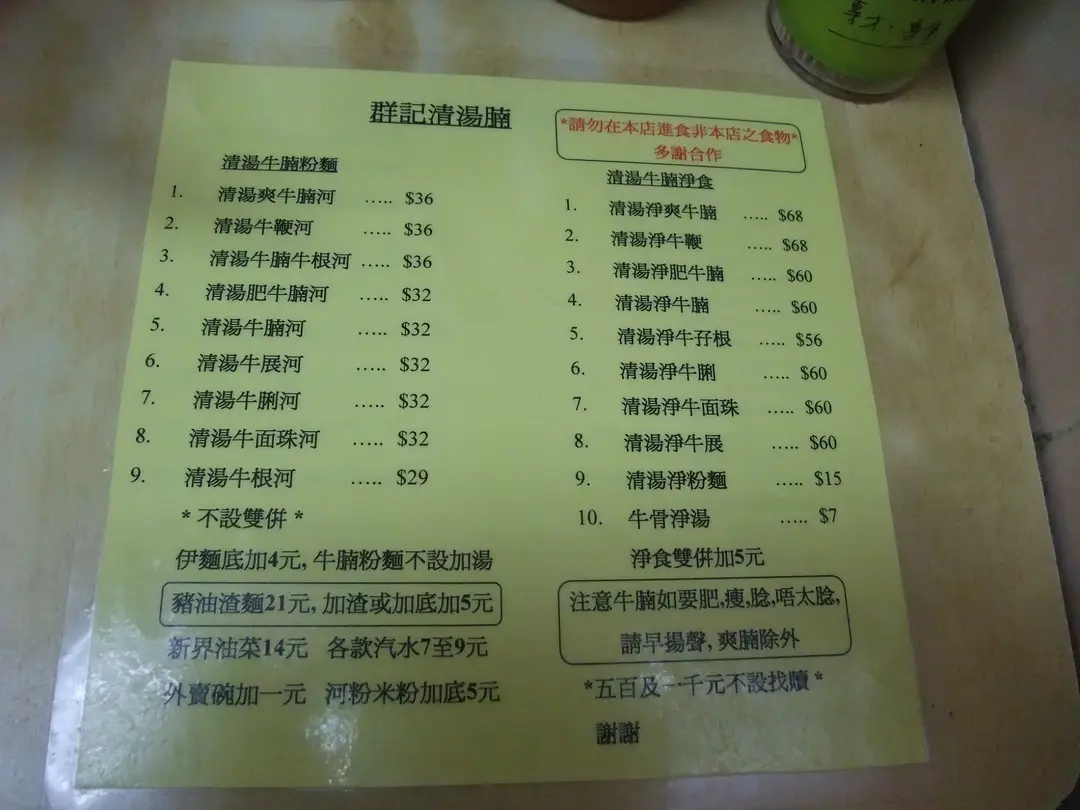 群記清湯腩
*請勿在本店進食非本店之食物*
多謝合作
清湯牛腩粉麵
1. 清湯爽牛腩河 ..... $36
2. 清湯牛鞭河 ..... $36
3. 清湯牛腩牛根河 ..... $36
4. 清湯肥牛腩河 ..... $32
5. 清湯牛腩河 ..... $32
6. 清湯牛展河 ..... $32
7. 清湯牛脷河 ..... $32
8. 清湯牛面珠河 ..... $32
9. 清湯牛根河 ..... $29
* 不設雙併 *
伊麵底加4元, 牛腩粉麵不設加湯
豬油渣麵21元, 加渣或加底加5元
新界油菜14元 各款汽水7至9元
外賣碗加一元 河粉米粉加底5元
清湯牛腩淨食
1. 清湯淨爽牛腩 ..... $68
2. 清湯淨牛鞭 ..... $68
3. 清湯淨肥牛腩 ..... $60
4. 清湯淨牛腩 ..... $60
5. 清湯淨牛孖根 ..... $56
6. 清湯淨牛脷 ..... $60
7. 清湯淨牛面珠 ..... $60
8. 清湯淨牛展 ..... $60
9. 清湯淨粉麵 ..... $15
10. 牛骨淨湯 ..... $7
淨食雙併加5元
注意牛腩如要肥,瘦,腍,唔太腍,
請早揚聲, 爽腩除外
*五百及一千元不設找贖 *
謝謝